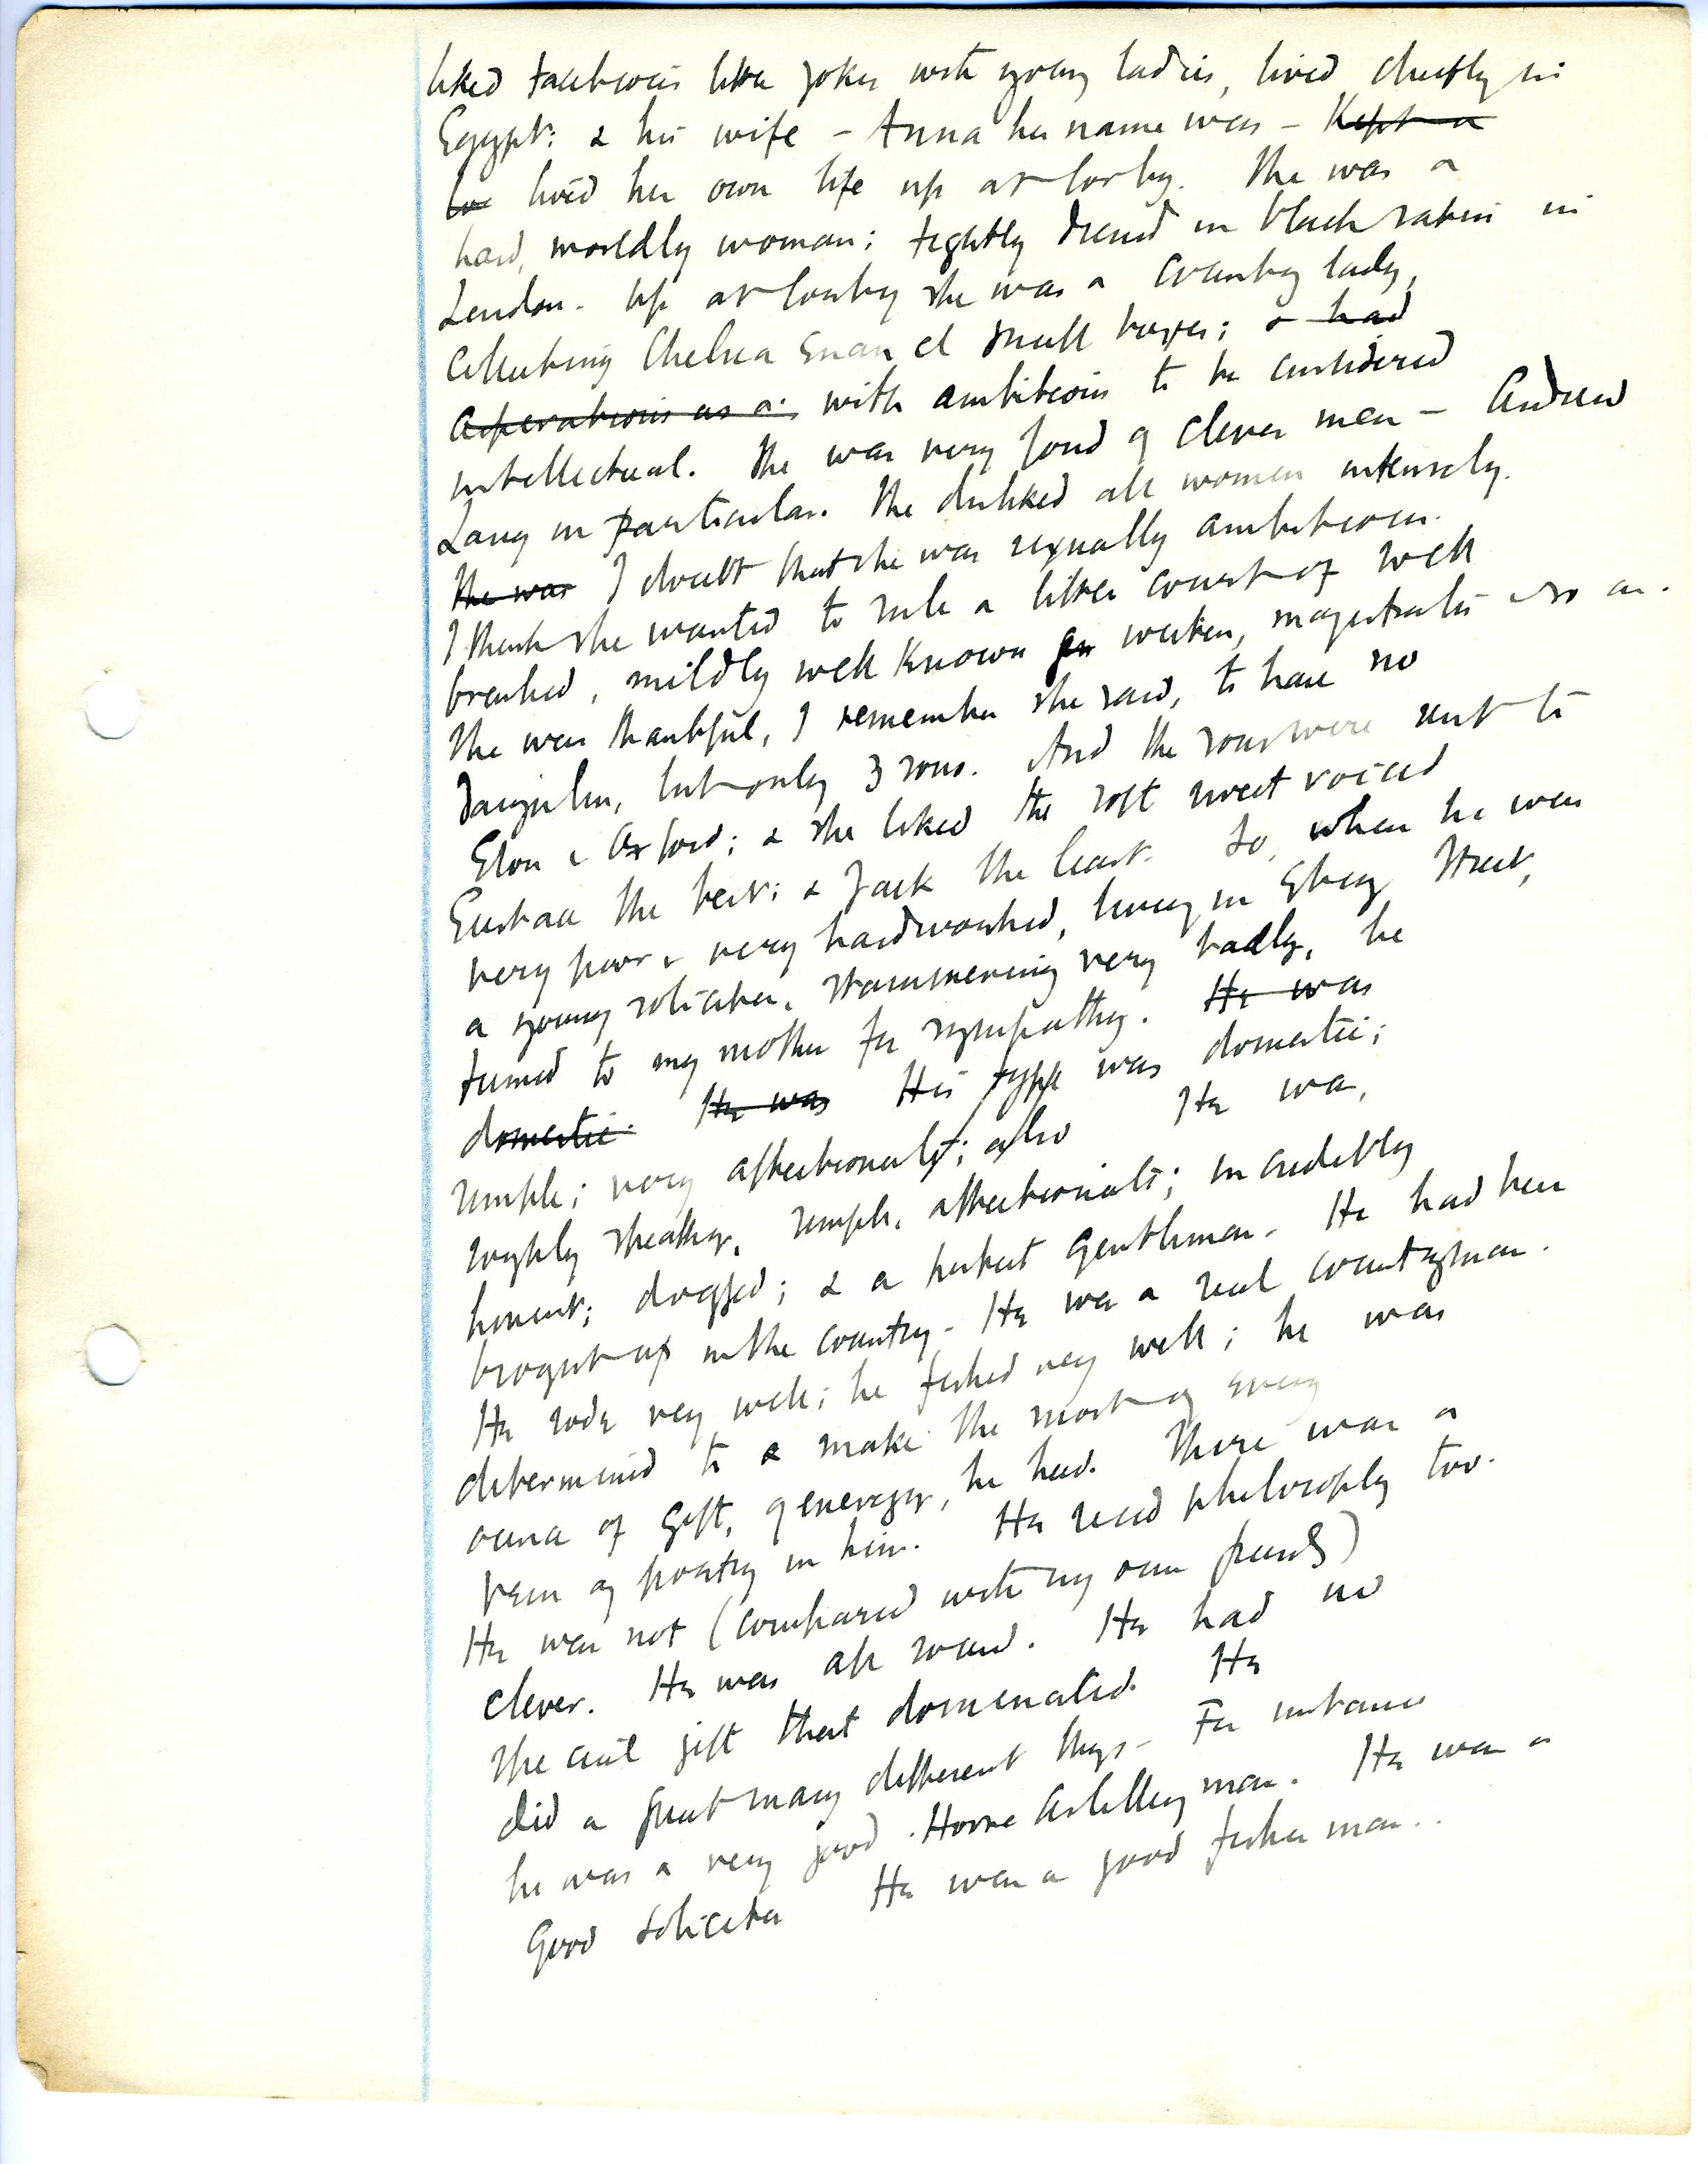 liked facetious little jokes with young ladies, lived chiefly in
Egypt: & his wife - Anna her name was - Kept a
lived her own life up at Corby. She was a
hard, worldly woman; tightly dressed in black satin in
London. Up at Corby she was a country lady,
collecting Chelsea Enamel snuff boxes; & had
asperations as a with ambitions to be considered
intellectual. She was very fond of clever men - Andrew
Lang in particular. She disliked all women intensely.
She was I doubt that she was sexually ambitious.
I think she wanted to rule a little court of well
breached, mildly well known writers, magistrates & so on.
She was thankful, I remember she said, to have no
daughters, but only 3 sons. And the sons were sent to
Eton & Oxford; & she liked the soft sweet voiced
Eustace the best; & Jack the least. So, when he was
very poor & very hardworked, living in Ebury Street,
a young solicitor, stammering very badly, he
turned to my mother for sympathy. He was
domestic. He was His type was domestic;
simple; very affectionate; also He was,
roughly speaking, simple, affectionate; incredibly
honest; dogged; & a perfect gentleman. He had been
brought up in the country. He was a real countryman.
He rode very well; he fished very well; he was
determined to & make the most of every
ounce of gift, of energy, he had. There was a
vein of poetry in him. He read philosophy too.
He was not (compared with my own friends)
clever. He was all round. He had no
special gift that dominated. He
did a great many different things. For instance
he was a very good Horse Artillery man. He was a
Good solicitor He was a good fisher man..